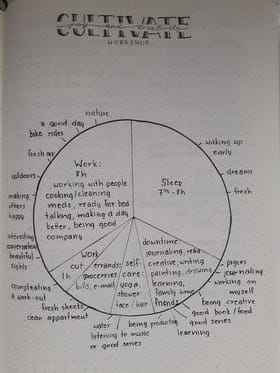 CULTIVATE
joy and creativity
WORKSHOP
nature
a good day
bike rides
fresh air
outdoors
making
others
happy
interesting
conversations
beautiful
sights
completing
a work-out
fresh sheets
clean appartment
water
listening to music
or good series
being productive
learning
good series
good book / food
being creative
myself
working on
journaling
pages
fresh
dreams
waking up
early
Work:
8h
working with people
cooking/cleaning
meds, ready for bed
talking, making a day
better, being good
company
Sleep
7½ - 8h
Work
out
1h
errands:
groceries
bills, e-mail
self-
care:
yoga,
shower
face / hair
downtime:
journaling, read
creative, writing
painting, drawing
learning,
family time
friends